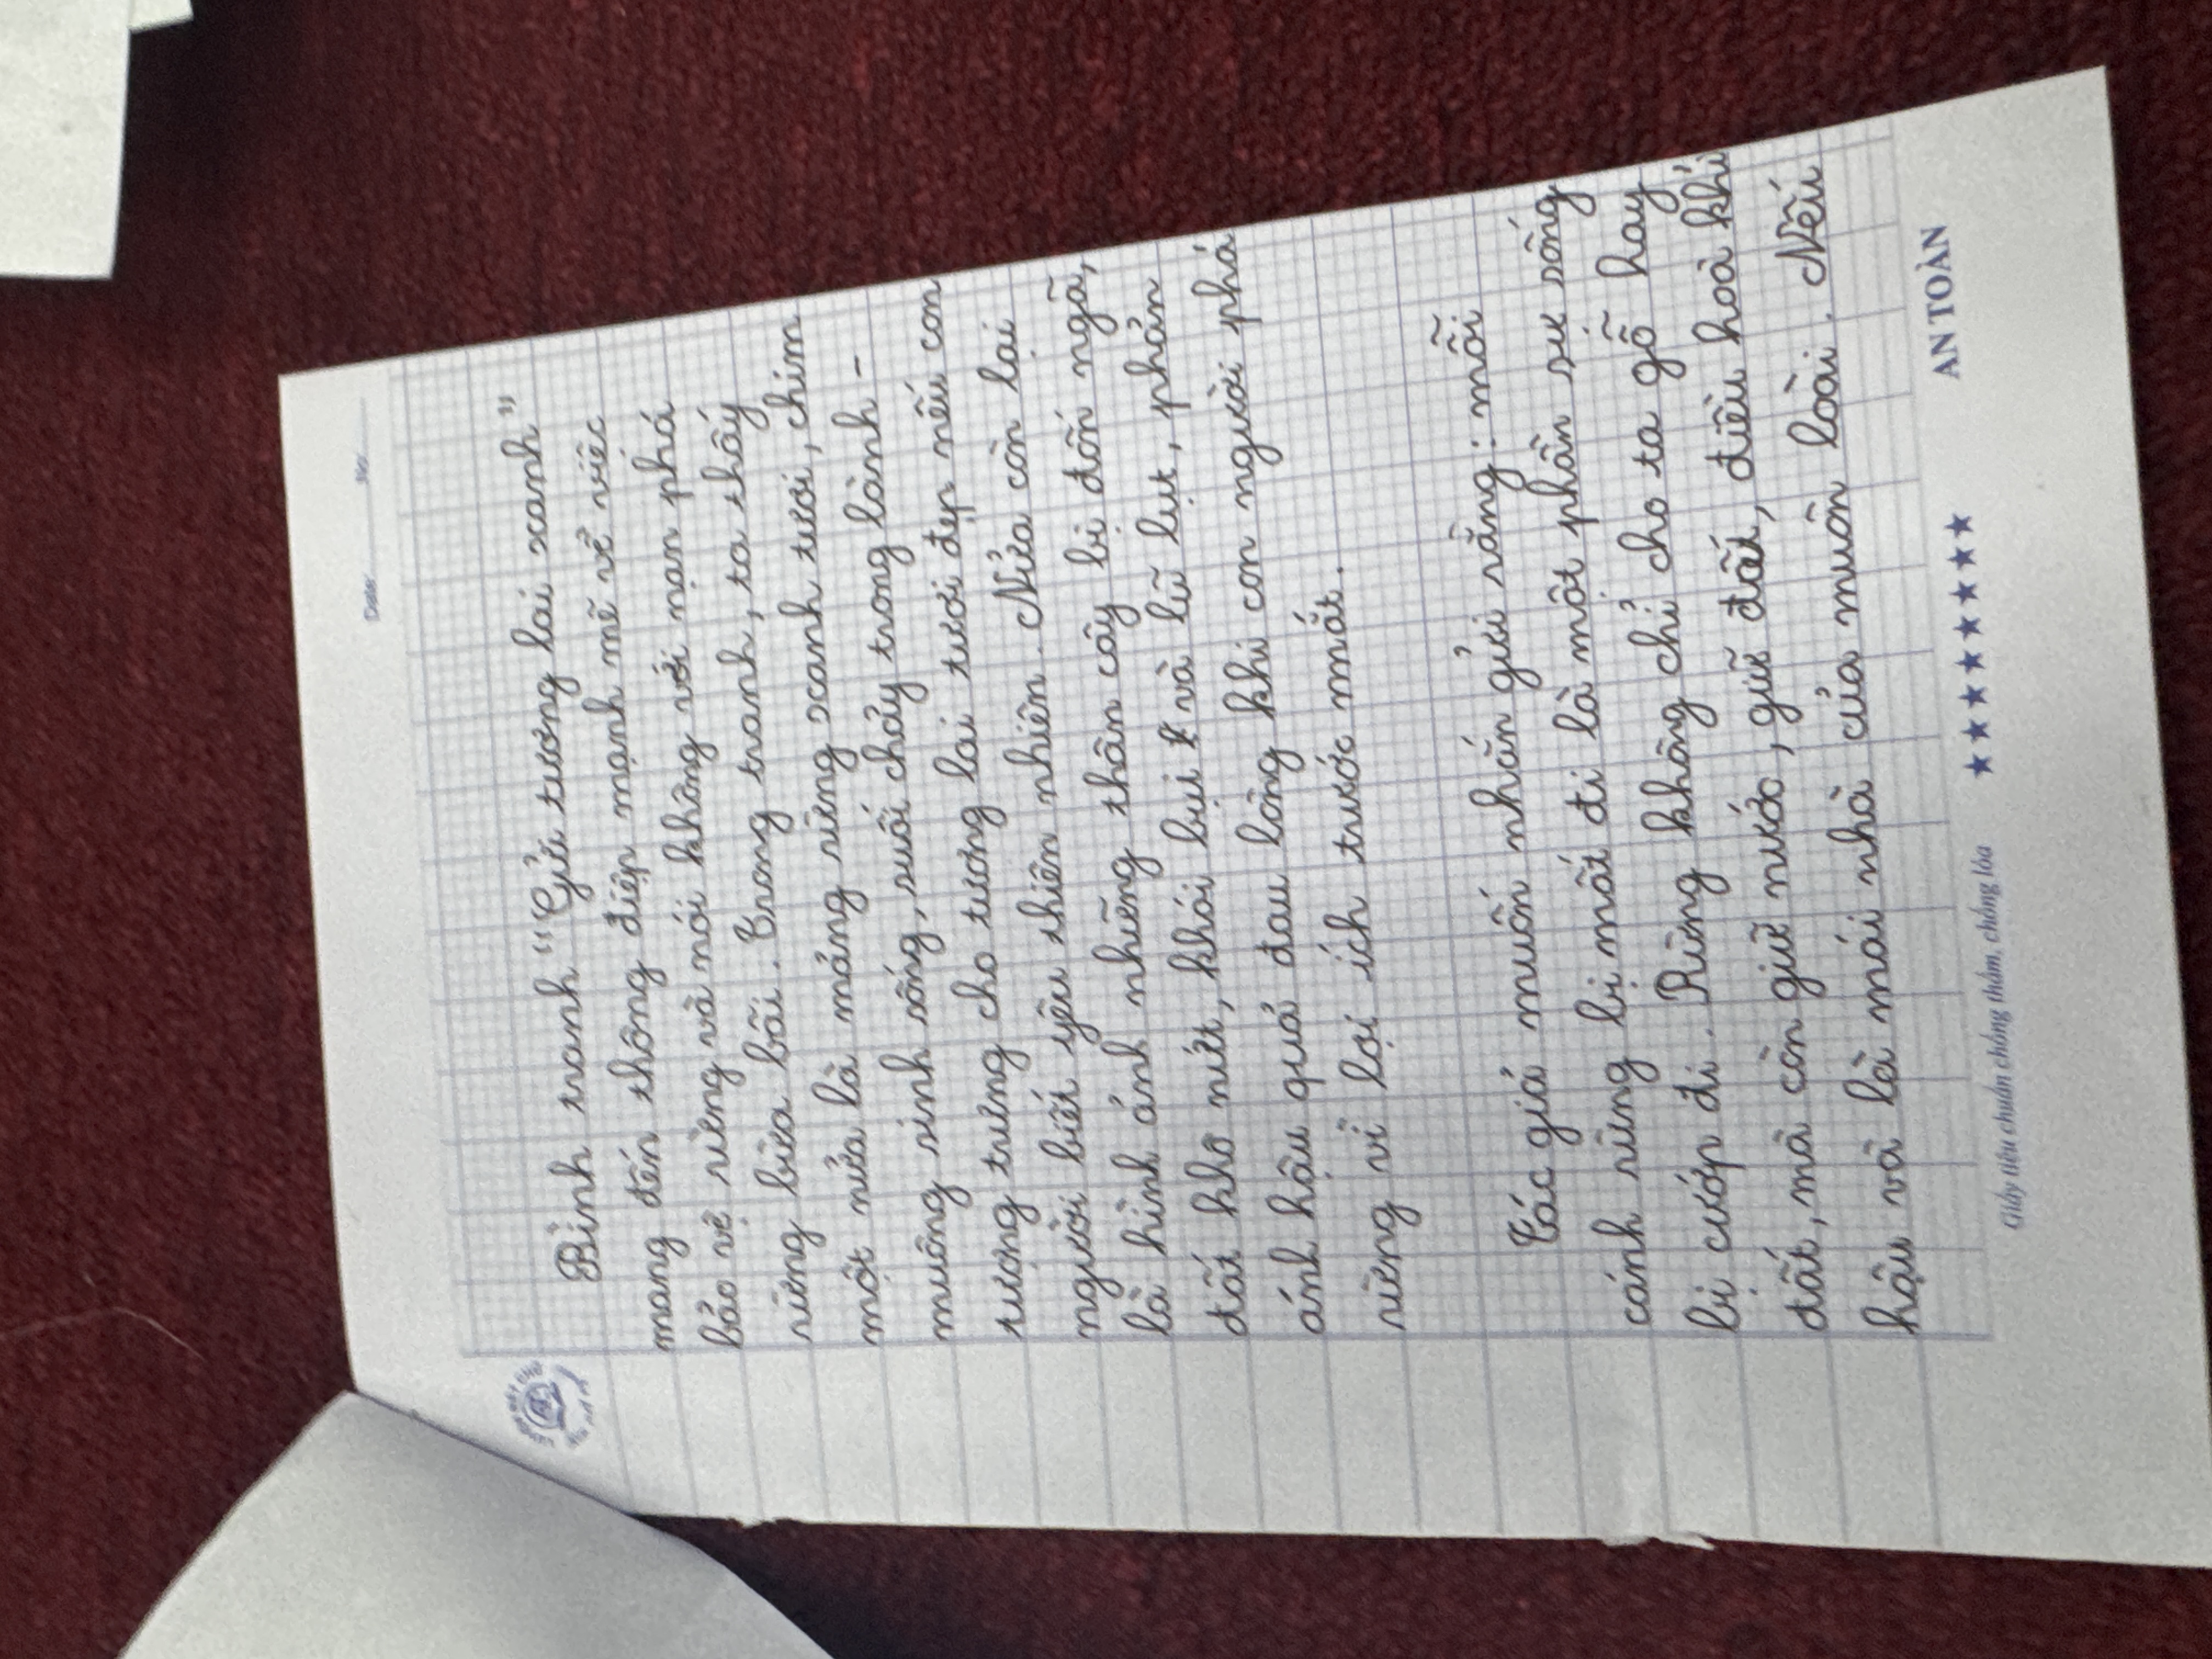 Date: No:
Bình tranh "Gửi tương lai xanh"
mang đến thông điệp mạnh mẽ về việc
bảo vệ rừng và nói không với nạn phá
rừng bừa bãi. Trong tranh, ta thấy
một nửa là mảng rừng xanh tươi, chim
muông sinh sống, suối chảy trong lành -
tượng trưng cho tương lai tươi đẹp nếu con
người biết yêu thiên nhiên. Nửa còn lại
là hình ảnh những thân cây bị đốn ngã,
đất khô nứt, khói bụi và lũ lụt, phản
ánh hậu quả đau lòng khi con người phá
rừng vì lợi ích trước mắt.
Tác giả muốn nhắn gửi rằng: mỗi
cánh rừng bị mất đi là một phần sự sống
bị cướp đi. Rừng không chỉ cho ta gỗ hay
đất, mà còn giữ nước, giữ đất, điều hoà khí
hậu và là mái nhà của muôn loài. Nếu
Giấy tiêu chuẩn chống thấm, chống lóa ★★★★★★★ AN TOÀN